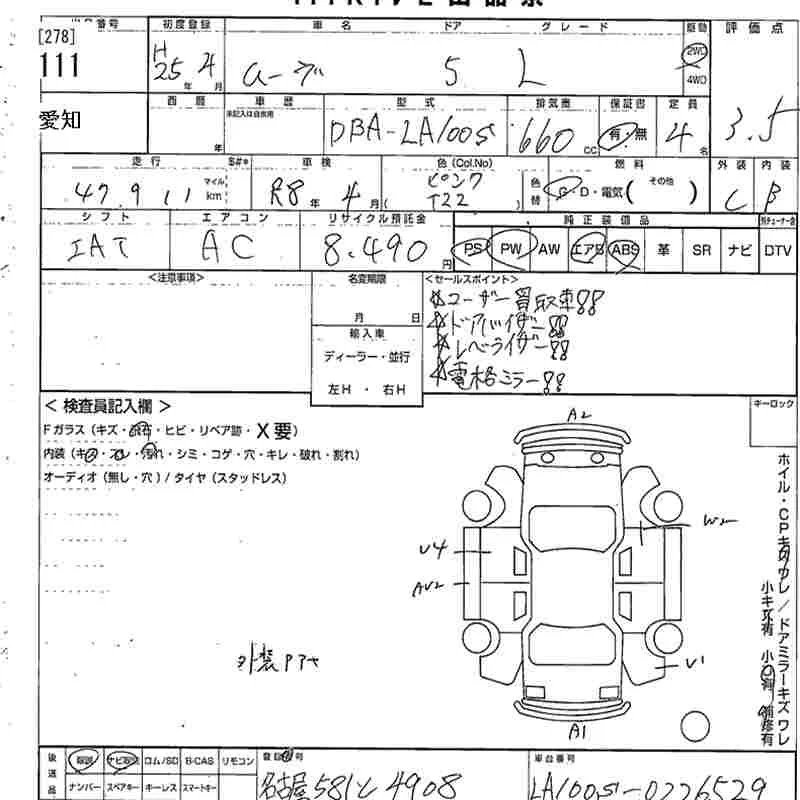 [278]
番号 初度登録 車名 ドア グレード 駆動 評価点
111 H25年 4月 ムーヴ 5 L 2WD 4WD 3.5
愛知 西暦 年 車歴 未記入は自家用 型式 排気量 保証書 定員
DBA-LA100S 660 CC 有・無 4名
走行 $#* 車検 色(Col.No) 燃料 外装 内装
47,911 マイル km R8年 4月 ピンク T22 色替 G・D・電気(その他) C B
シフト エアコン リサイクル預託金 純正装備品
IAT AC 8.490円 PS PW AW エアB ABS 革 SR ナビ DTV
<注意事項> 名変期限 <セールスポイント>
月 日
☆ユーザー買取車!!
☆ドアバイザー!!
☆レベライザー!!
☆電格ミラー!!
輸入車
ディーラー・並行
左H ・ 右H
< 検査員記入欄 > キーロック
Fガラス(キズ・飛石・ヒビ・リペア跡・X要)
内装(キズ・スレ・汚れ・シミ・コゲ・穴・キレ・破れ・割れ)
オーディオ(無し・穴)/タイヤ(スタッドレス)
A2
W2
U4
AU2
U1
A1
外装
ホイル・CPキズワレ/ドアミラーキズワレ
後送品 取説 ナビ取説 ロム/SD B-CAS リモコン 登録番号 車台番号
ナンバー スペアキー キーレス スマートキー
名古屋581と4908 LA100S-0226529